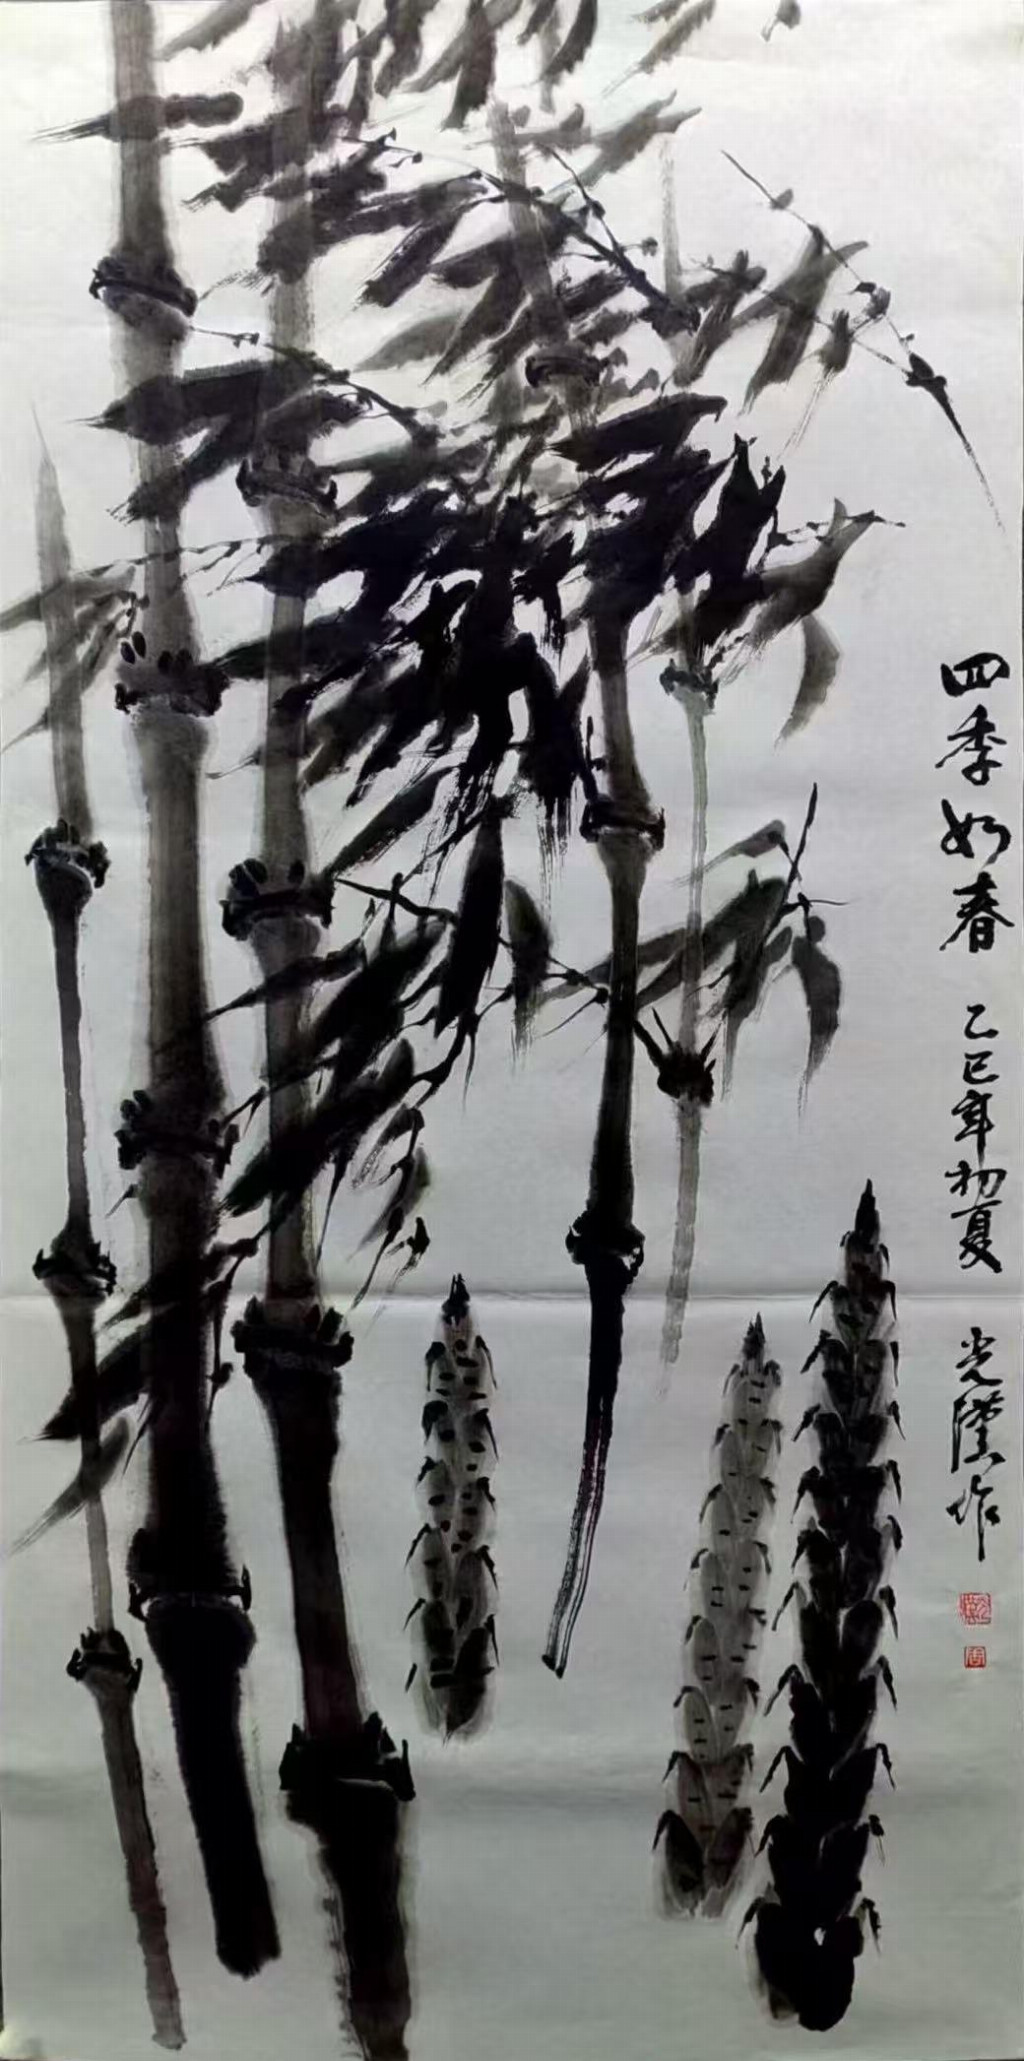 四季如春
乙巳年初夏
光陞作